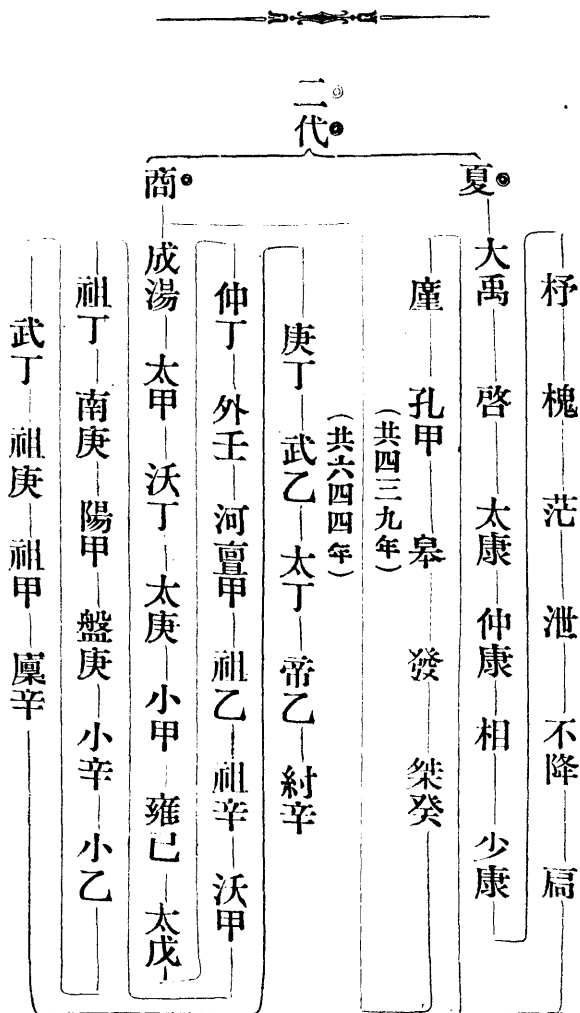 二代
夏
大禹 啓 太康 仲康 相 少康
杼 槐 茫 泄 不降 扃
廑 孔甲 皋 發 桀癸
（共四三九年）
商
成湯 太甲 沃丁 太庚 小甲 雍已 太戊
仲丁 外壬 河亶甲 祖乙 祖辛 沃甲
祖丁 南庚 陽甲 盤庚 小辛 小乙
武丁 祖庚 祖甲 廩辛
庚丁 武乙 太丁 帝乙 紂辛
（共六四四年）